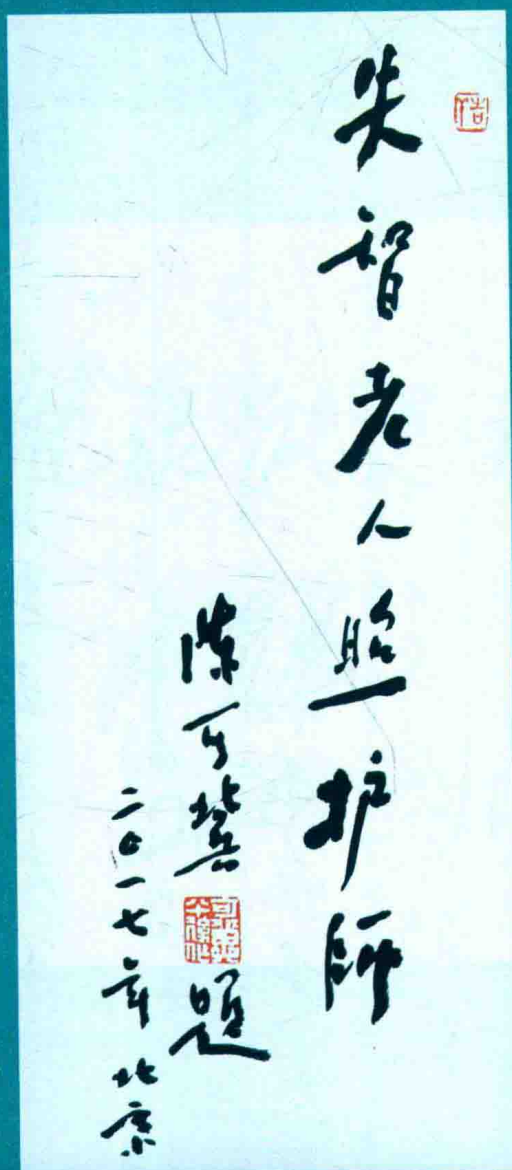 失智老人照护师
陈可冀题
二〇一七年北京